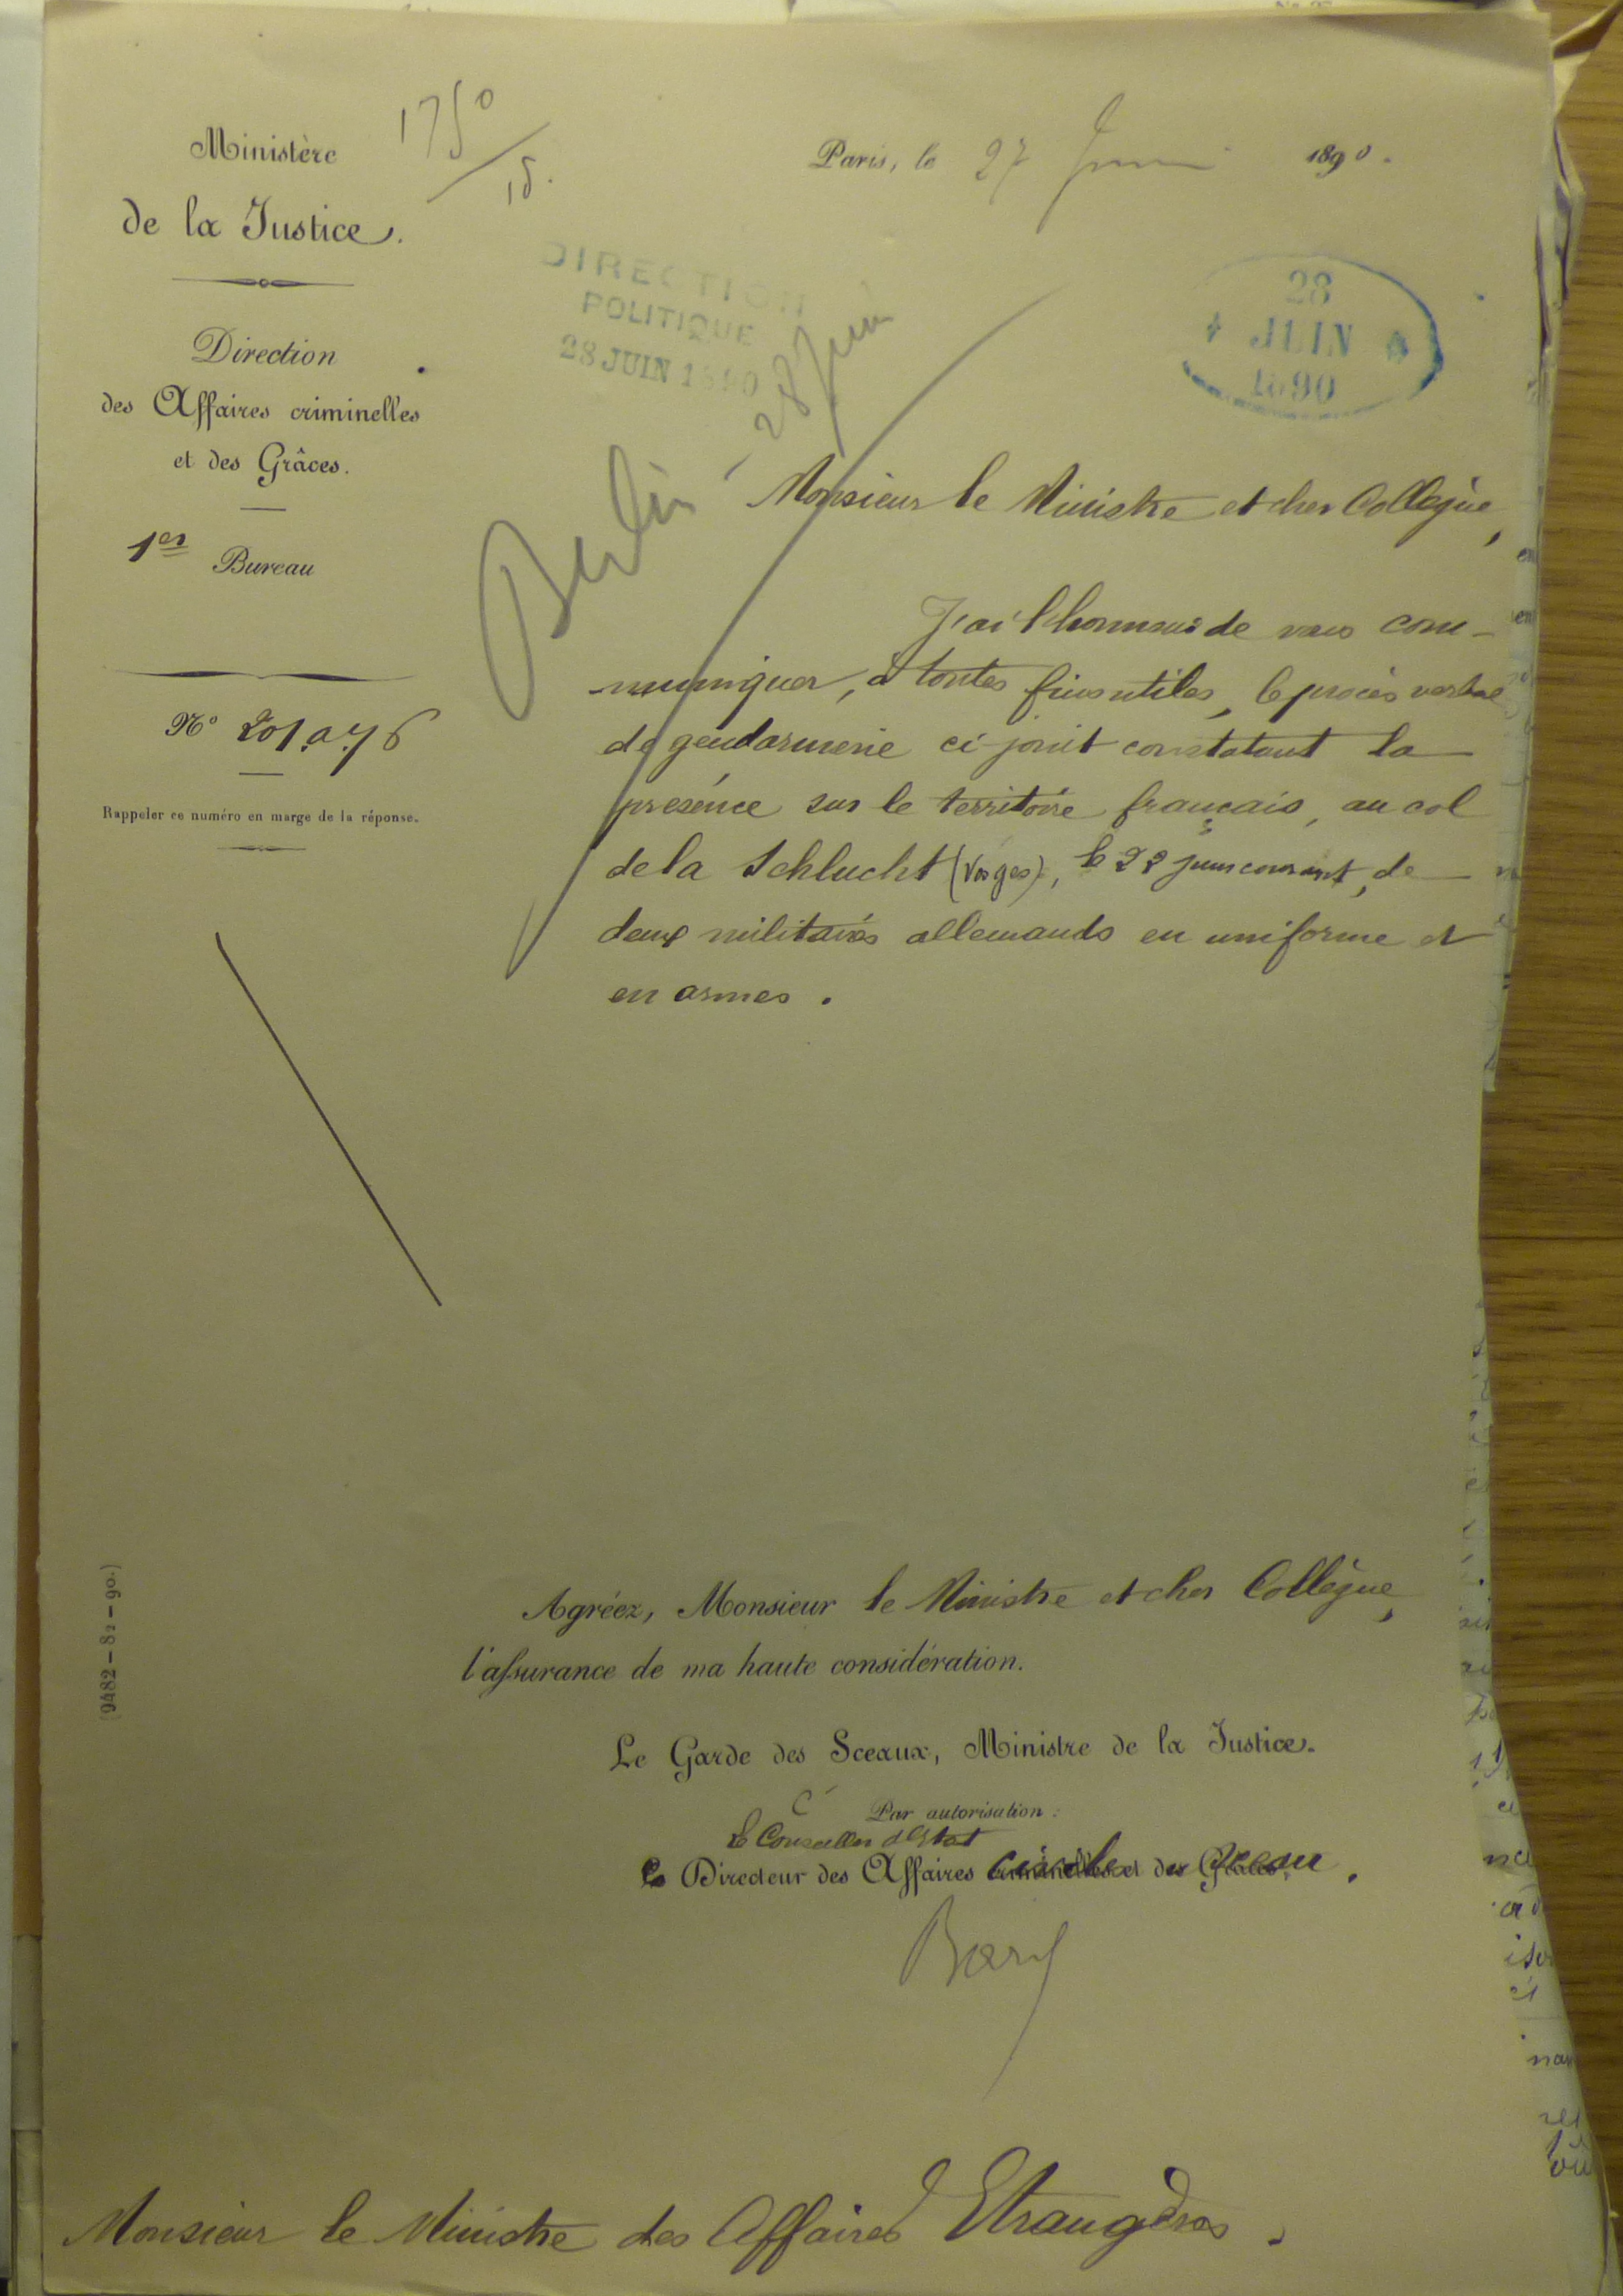 Ministère
de la Justice.
Direction
des Affaires criminelles
et des Grâces.
1er Bureau
No 201.a.76
Rappeler ce numéro en marge de la réponse.
(9482-82-90.)
1750
/15.
Paris, le 27 Juin 1890.
DIRECTION
POLITIQUE
28 JUIN 1890
28
JUIN
1890
Berlin 28 Juin
Monsieur le Ministre et cher Collègue,
J'ai l'honneur de vous com-
muniquer, à toutes fins utiles, le procès verbal
de gendarmerie ci-joint constatant la
présence sur le territoire français, au col
de la Schlucht (Vosges), le 22 juin courant, de
deux militaires allemands en uniforme et
en armes.
Agréez, Monsieur le Ministre et cher Collègue,
l'assurance de ma haute considération.
Le Garde des Sceaux, Ministre de la Justice.
Par autorisation:
Le Conseiller d'Etat
Directeur des Affaires civiles et du Sceau.
Monsieur le Ministre des Affaires Etrangères.